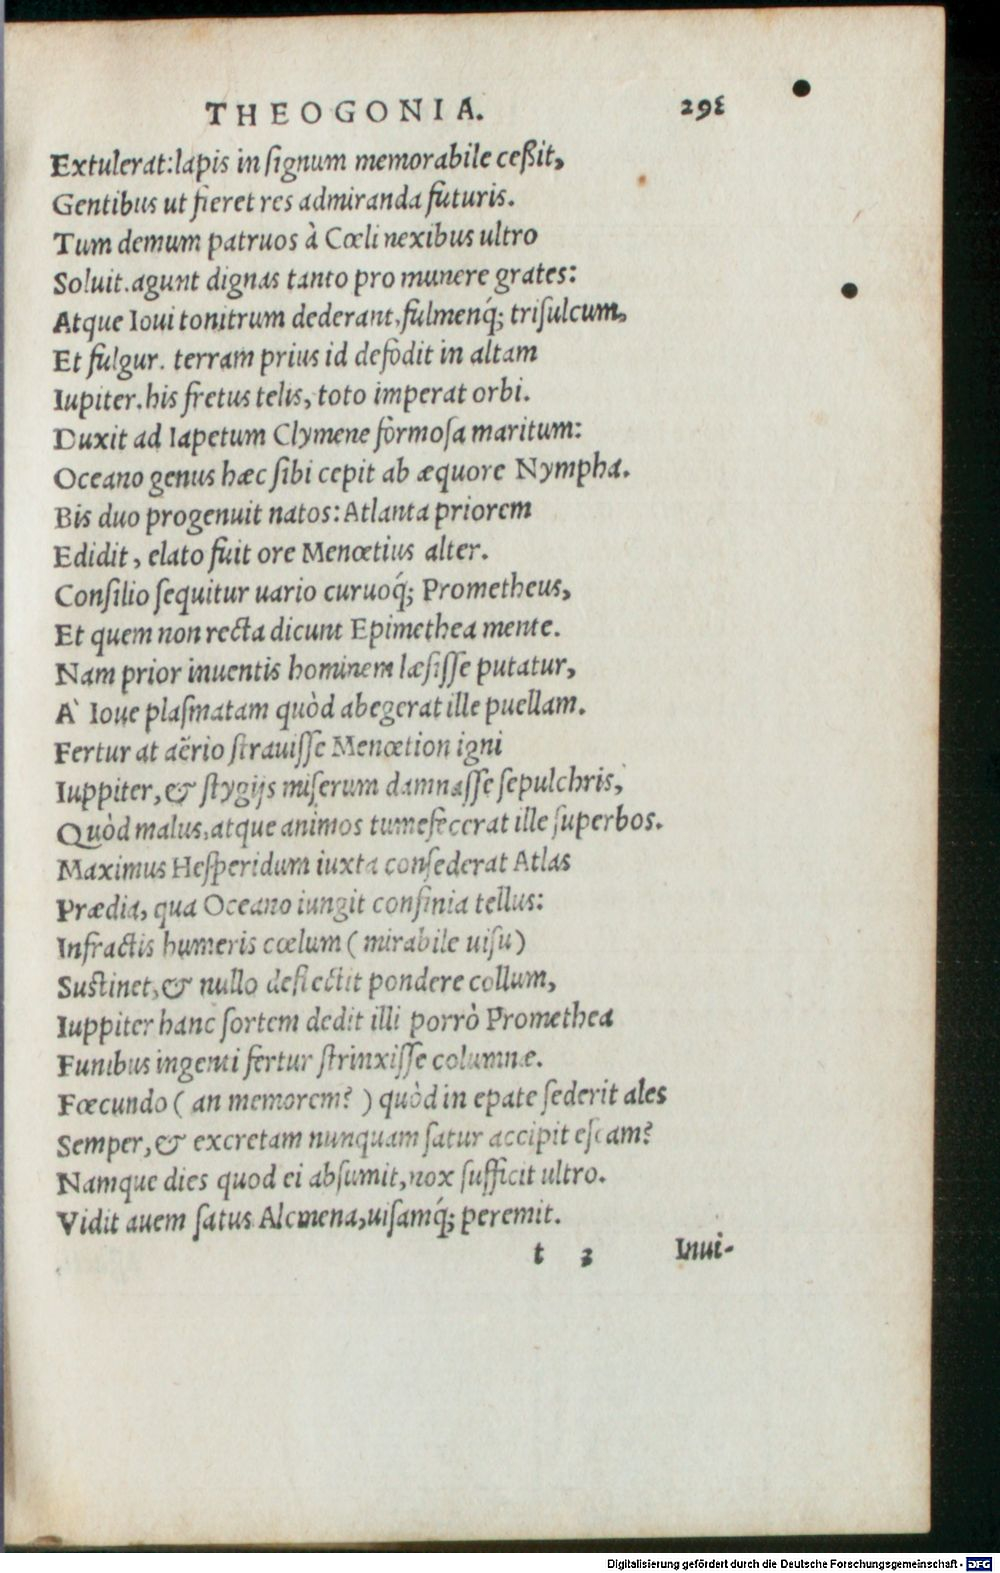 THEOGONIA. 295
Extulerat: lapis in signum memorabile ceßit,
Gentibus ut fieret res admiranda futuris.
Tum demum patruos à Cœli nexibus ultro
Soluit. agunt dignas tanto pro munere grates:
Atque Ioui tonitrum dederant, fulmenq́; trisulcum,
Et fulgur. terram prius id defodit in altam
Iupiter. his fretus telis, toto imperat orbi.
Duxit ad Iapetum Clymene formosa maritum:
Oceano genus hæc sibi cepit ab æquore Nympha.
Bis duo progenuit natos: Atlanta priorem
Edidit, elato fuit ore Menœtius alter.
Consilio sequitur uario curuoq́; Prometheus,
Et quem non recta dicunt Epimethea mente.
Nam prior inuentis hominem læsisse putatur,
A` Ioue plasmatam quòd abegerat ille puellam.
Fertur at aërio strauisse Menœtion igni
Iuppiter, & stygijs miserum damnasse sepulchris,
Quòd malus, atque animos tumefecerat ille superbos.
Maximus Hesperidum iuxta consederat Atlas
Prædia, qua Oceano iungit confinia tellus:
Infractis humeris cœlum ( mirabile uisu )
Sustinet, & nullo deflectit pondere collum,
Iuppiter hanc sortem dedit illi porrò Promethea
Funibus ingenti fertur strinxisse columnæ.
Fœcundo ( an memorem? ) quòd in epate sederit ales
Semper, & excretam nunquam satur accipit escam?
Namque dies quod ei absumit, nox sufficit ultro.
Vidit auem satus Alcmena, uisamq́; peremit.
t 3 Inui-
Digitalisierung gefördert durch die Deutsche Forschungsgemeinschaft - DFG